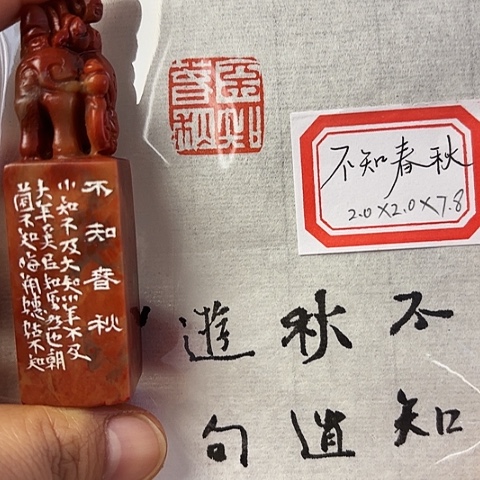 不知春秋
小知不及大知小年不及
大年奚㠯知其然也朝
菌不知晦朔蟪蛄不知
不知
春秋
不知春秋
2.0×2.0×7.8
不知
秋逍
遊句